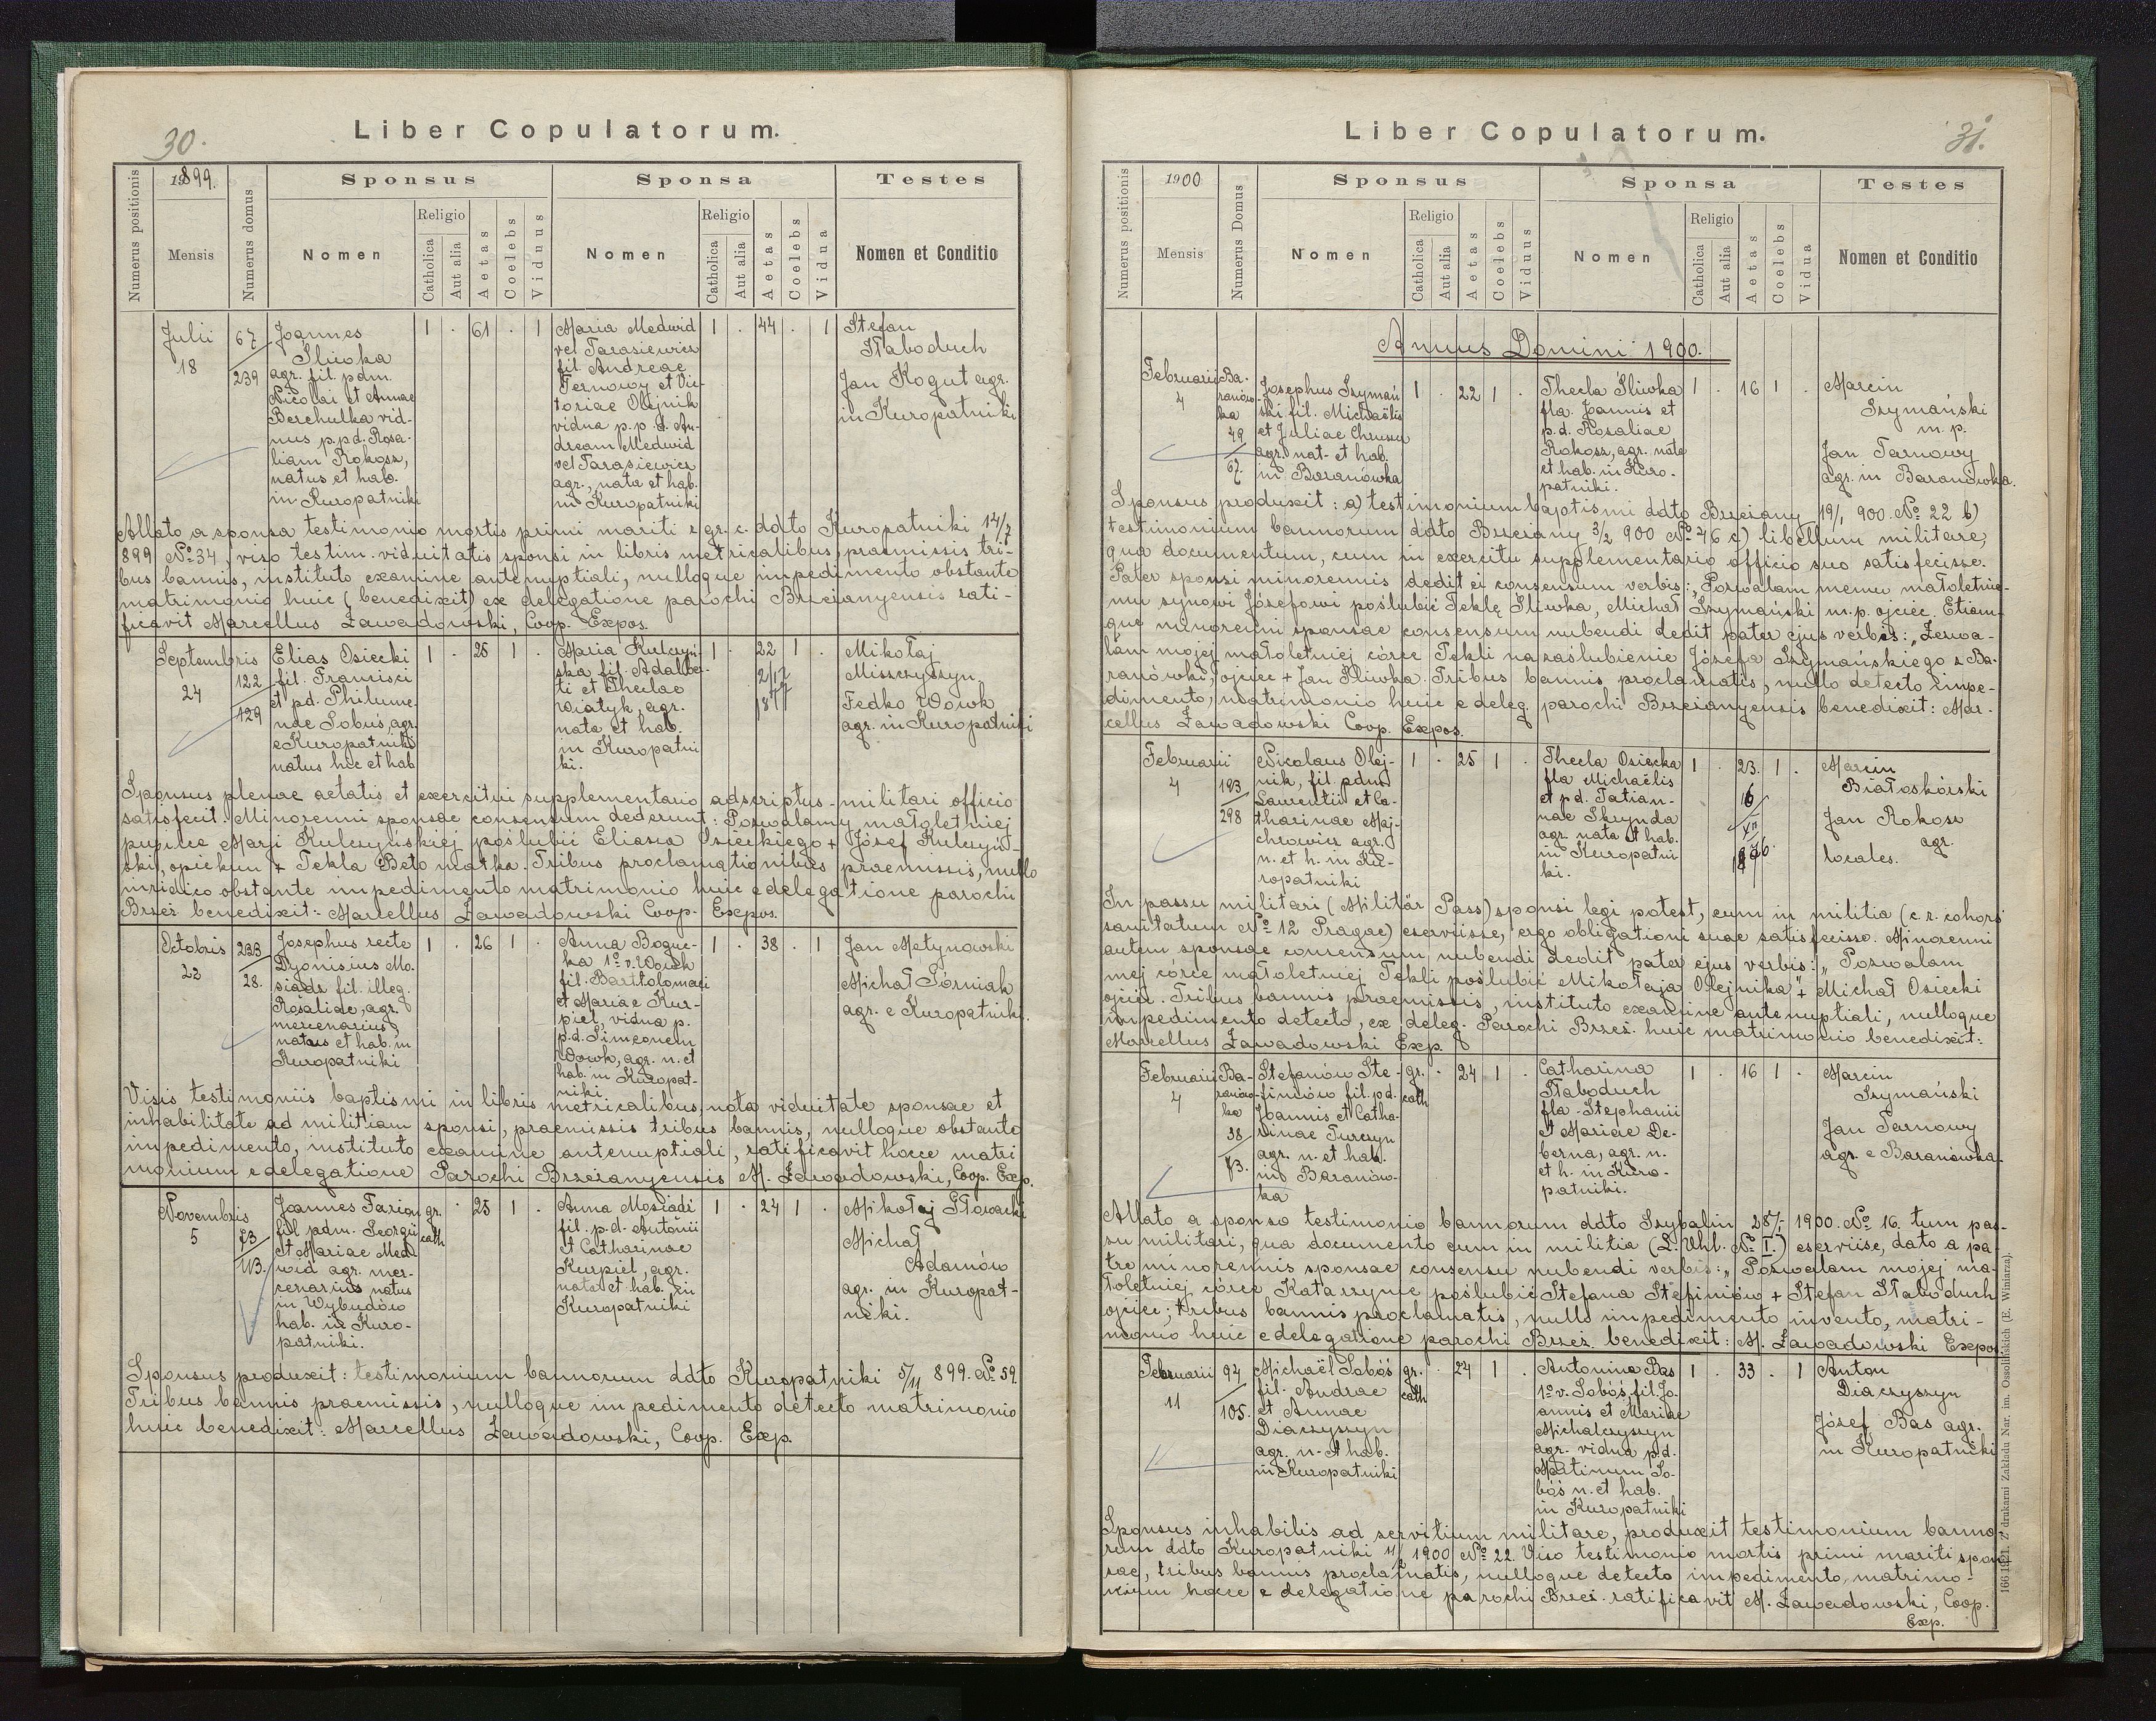 30.
Liber Copulatorum.
Numerus positionis
1899.
Mensis
Numerus domus
Sponsus
Nomen
Religio
Catholica
Aut alia
Aetas
Coelebs
Viduus
Sponsa
Nomen
Religio
Catholica
Aut alia
Aetas
Coelebs
Vidua
Testes
Nomen et Conditio
Julii
18
67
239
Joannes
Śliwka
agr. fil. pdm.
Nicolai et Annae
Berchulka vid-
nus p.p.d. Rosa-
liam Rokosz,
natus et hab.
in Kuropatniki
1 . 61 . 1
Maria Medwid
vel Tarasiewicz
fil. Andreae
Ternowy et Vic-
toriae Olejnik
vidua p.p.d. An-
dream Medwid
vel Tarasiewicz
agr., nata et hab.
in Kuropatniki
1 . 44 . 1
Stefan
Słaboduch
Jan Kogut agr.
in Kuropatniki
Allato a sponsa testimonio mortis primi mariti e gr. c. ddto Kuropatniki 14/7
899 No 34, viso testim. viduitatis sponsi in libris metricalibus, praemissis tri-
bus bannis, instituto examine antenuptiali, nulloque impedimento obstante
matrimonio huic (benedixit) ex delegatione parochi Brzeżanyensis rati-
ficavit Marcellus Zawadowski, Coop. Expos.
Septembris
24
122
129
Elias Osiecki
fil. Francisci
et pd. Philume-
nae Sobuś, agr.
e Kuropatniki
natus hic et hab
1 . 25 1 .
Maria Kulczyń-
ska fil. Adalber-
ti et Theclae
Wiatyk, agr.
nata et hab.
in Kuropatni
ki.
1 . 22 1 .
2/12
1877
Mikołaj
Miszczyszyn
Fedko Wowk
agr. in Kuropatniki
Sponsus plenae aetatis et exercitui supplementario adscriptus - militari officio
satisfecit. Minorenni sponsae consensum dederunt: Pozwalamy małoletniej
pupilce Marji Kulczyńskiej poślubić Eliasza Osieckiego + Józef Kulczyń-
ski, opiekun + Tekla Beto matka. Tribus proclamationibus praemissis, nullo
iuridico obstante impedimento matrimonio huic e delegatione parochi
Brzeż. benedixit: Marcellus Zawadowski Coop. Expos.
Octobris
22
233
28.
Josephus recte
Dyonisius Mo-
siądz fil. illeg.
Rosaliae, agr.
mercenarius,
natus et hab. in
Kuropatniki
1 . 26 1 .
Anna Boguc-
ka 1o v. Wowk
fil. Bartholomaei
et Mariae Kur-
piel, vidua p.
p.d. Simeonem
Wowk, agr. n. et
hab. in Kuropat-
niki
1 . 38 . 1
Jan Metynowski
Michał Górniak
agr. e Kuropatniki.
Visis testimoniis baptismi in libris metricalibus, nota viduitate sponsae et
inhabilitate ad militiam sponsi, praemissis tribus bannis, nulloque obstante
impedimento, instituto examine antenuptiali, ratificavit hocce matri
monium e delegatione Parochi Brzeżanyensis M. Zawadowski, Coop. Exp.
Novembris
5
73
113.
Joannes Farion
fil. pdm. Georgii
et Mariae Med-
wid agr. mer-
cenarius natus
in Wybudów
hab. in Kuro-
patniki.
gr. cath . 25 1 .
Anna Mosiadz
fil. p.d. Antonii
et Catharinae
Kurpiel, agr.
nata et hab. in
Kuropatniki
1 . 24 1 .
Mikołaj Słowacki
Michał
Adamów
agr. in Kuropat-
niki.
Sponsus produxit: testimonium bannorum ddto Kuropatniki 5/11 899. No 59.
Tribus bannis praemissis, nulloque impedimento detecto matrimonio
huic benedixit: Marcellus Zawadowski, Coop. Exp.
31.
Liber Copulatorum.
Numerus positionis
1900
Mensis
Numerus Domus
Sponsus
Nomen
Religio
Catholica
Aut alia
Aetas
Coelebs
Viduus
Sponsa
Nomen
Religio
Catholica
Aut alia
Aetas
Coelebs
Vidua
Testes
Nomen et Conditio
Annus Domini 1900.
Februarii
4
Ba-
ranów-
ka
49
67.
Josephus Szymań
ski fil. Michaëlis
et Juliae Chruszcz
agr. nat. et hab.
in Baranówka
1 . 22 1 .
Thecla Śliwka
fla. Joannis et
p.d. Rosaliae
Rokosz, agr. nata
et hab. in Kuro-
patniki.
1 . 16 1 .
Marcin
Szymański
m. p.
Jan Tarnowy
agr. in Baranówka.
Sponsus produxit: a) testimonium baptismi ddto Brzeżany 19/1 900. No 22 b)
testimonium bannorum ddto Brzeżany 3/2 900 No 46 c) libellum militare,
qua documentum, eum in exercitu supplementario officio suo satisfecisse.
Pater sponsi minorennis dedit ei consensum verbis: „Pozwalam memu małoletnie-
mu synowi Józefowi poślubić Teklę Śliwka, Michał Szymański m.p. ojciec. Etiam-
que minorenni sponsae consensum nubendi dedit pater ejus verbis: „Zezwa-
lam mojej małoletniej córce Tekli na zaślubienie Józefa Szymańskiego z Ba-
ranówki, ojciec + Jan Śliwka. Tribus bannis proclamatis, nullo detecto impe-
dimento, matrimonio huic e deleg. parochi Brzeżanyensis benedixit: Mar-
cellus Zawadowski Coop. Expos.
Februarii
4
193
298
Nicolaus Olej-
nik, fil. pdm
Laurentii et Ca-
tharinae Maj-
chrowicz agr.
n. et h. in Ku-
ropatniki
1 . 25 1 .
Thecla Osiecka
fla Michaëlis
et pd. Tatian-
nae Skrynda
agr. nata et hab.
in Kuropatni-
ki.
1 . 23. 1 .
Marcin
Białoskórski
Jan Rokosz
agr.
locales.
In passu militari (Militär Pass) sponsi legi potest, eum in militia (c. r. cohors
sanitatum No 12 Pragae) eserviisse, ergo obligationi suae satisfecisse. Minorenni
autem sponsae consensum nubendi dedit pater ejus verbis: „Pozwalam
mej córce małoletniej Tekli poślubić Mikołaja Olejnika" + Michał Osiecki
ojciec. Tribus bannis praemissis, instituto examine antenuptiali, nulloque
impedimento detecto, ex deleg. Parochi Brzeż. huic matrimonio benedixit:
Marcellus Zawadowski Exp.
Februarii
4
Ba-
ranów-
ka
38
73.
Stefanów Ste-
finiów fil. p.d.
Joannis et Catha-
rinae Turczyn
agr. n. et hab.
in Baranów-
ka
gr. cath . 24 1 .
Catharina
Słaboduch
fla. Stephanii
et Mariae De-
berna, agr. n.
et h. in Kuro-
patniki.
1 . 16 1 .
Marcin
Szymański
Jan Ternowy
agr. e Baranówka.
Allato a sponso testimonio bannorum ddto Szybalin 28/1 1900. No 16. tum pas-
su militari, qua documento eum in militia (L. Uhl. No I.) eserviise, dato a pa-
tre minorennis sponsae consensu nubendi verbis: „Pozwalam mojej ma-
łoletniej córce Katarzynie poślubić Stefana Stefiniów + Stefan Słaboduch
ojciec; tribus bannis proclamatis, nullo impedimento invento, matri-
monio huic e delegatione parochi Brzeż. benedixit: M. Zawadowski Expos
Februarii
11
94
105.
Michaël Sobóś
fil. Andrae
et Annae
Diaczyszyn
agr. n. et hab.
in Kuropatniki
gr. cath . 24 1 .
Antonina Bas
1o v. Sobóś, fil. Jo-
annis et Mariae
Michalczyszyn
agr. vidua p.d.
Martinum So-
bóś n. et hab.
in Kuropatniki
1 . 33 . 1
Anton
Diaczyszyn
Józef Bas agr.
in Kuropatniki
Sponsus inhabilis ad servitium militare, produxit testimonium banno
rum ddto Kuropatniki 11/2 1900 No 22. Viso testimonio mortis primi mariti spon
sae, tribus bannis proclamatis, nulloque detecto impedimento, matrimo-
nium hocce e delegatione parochi Brzeż. ratificavit M. Zawadowski, Coop.
Exp.
166 1921. Z drukarni Zakładu Nar. im. Ossolińskich (E. Winiarza).